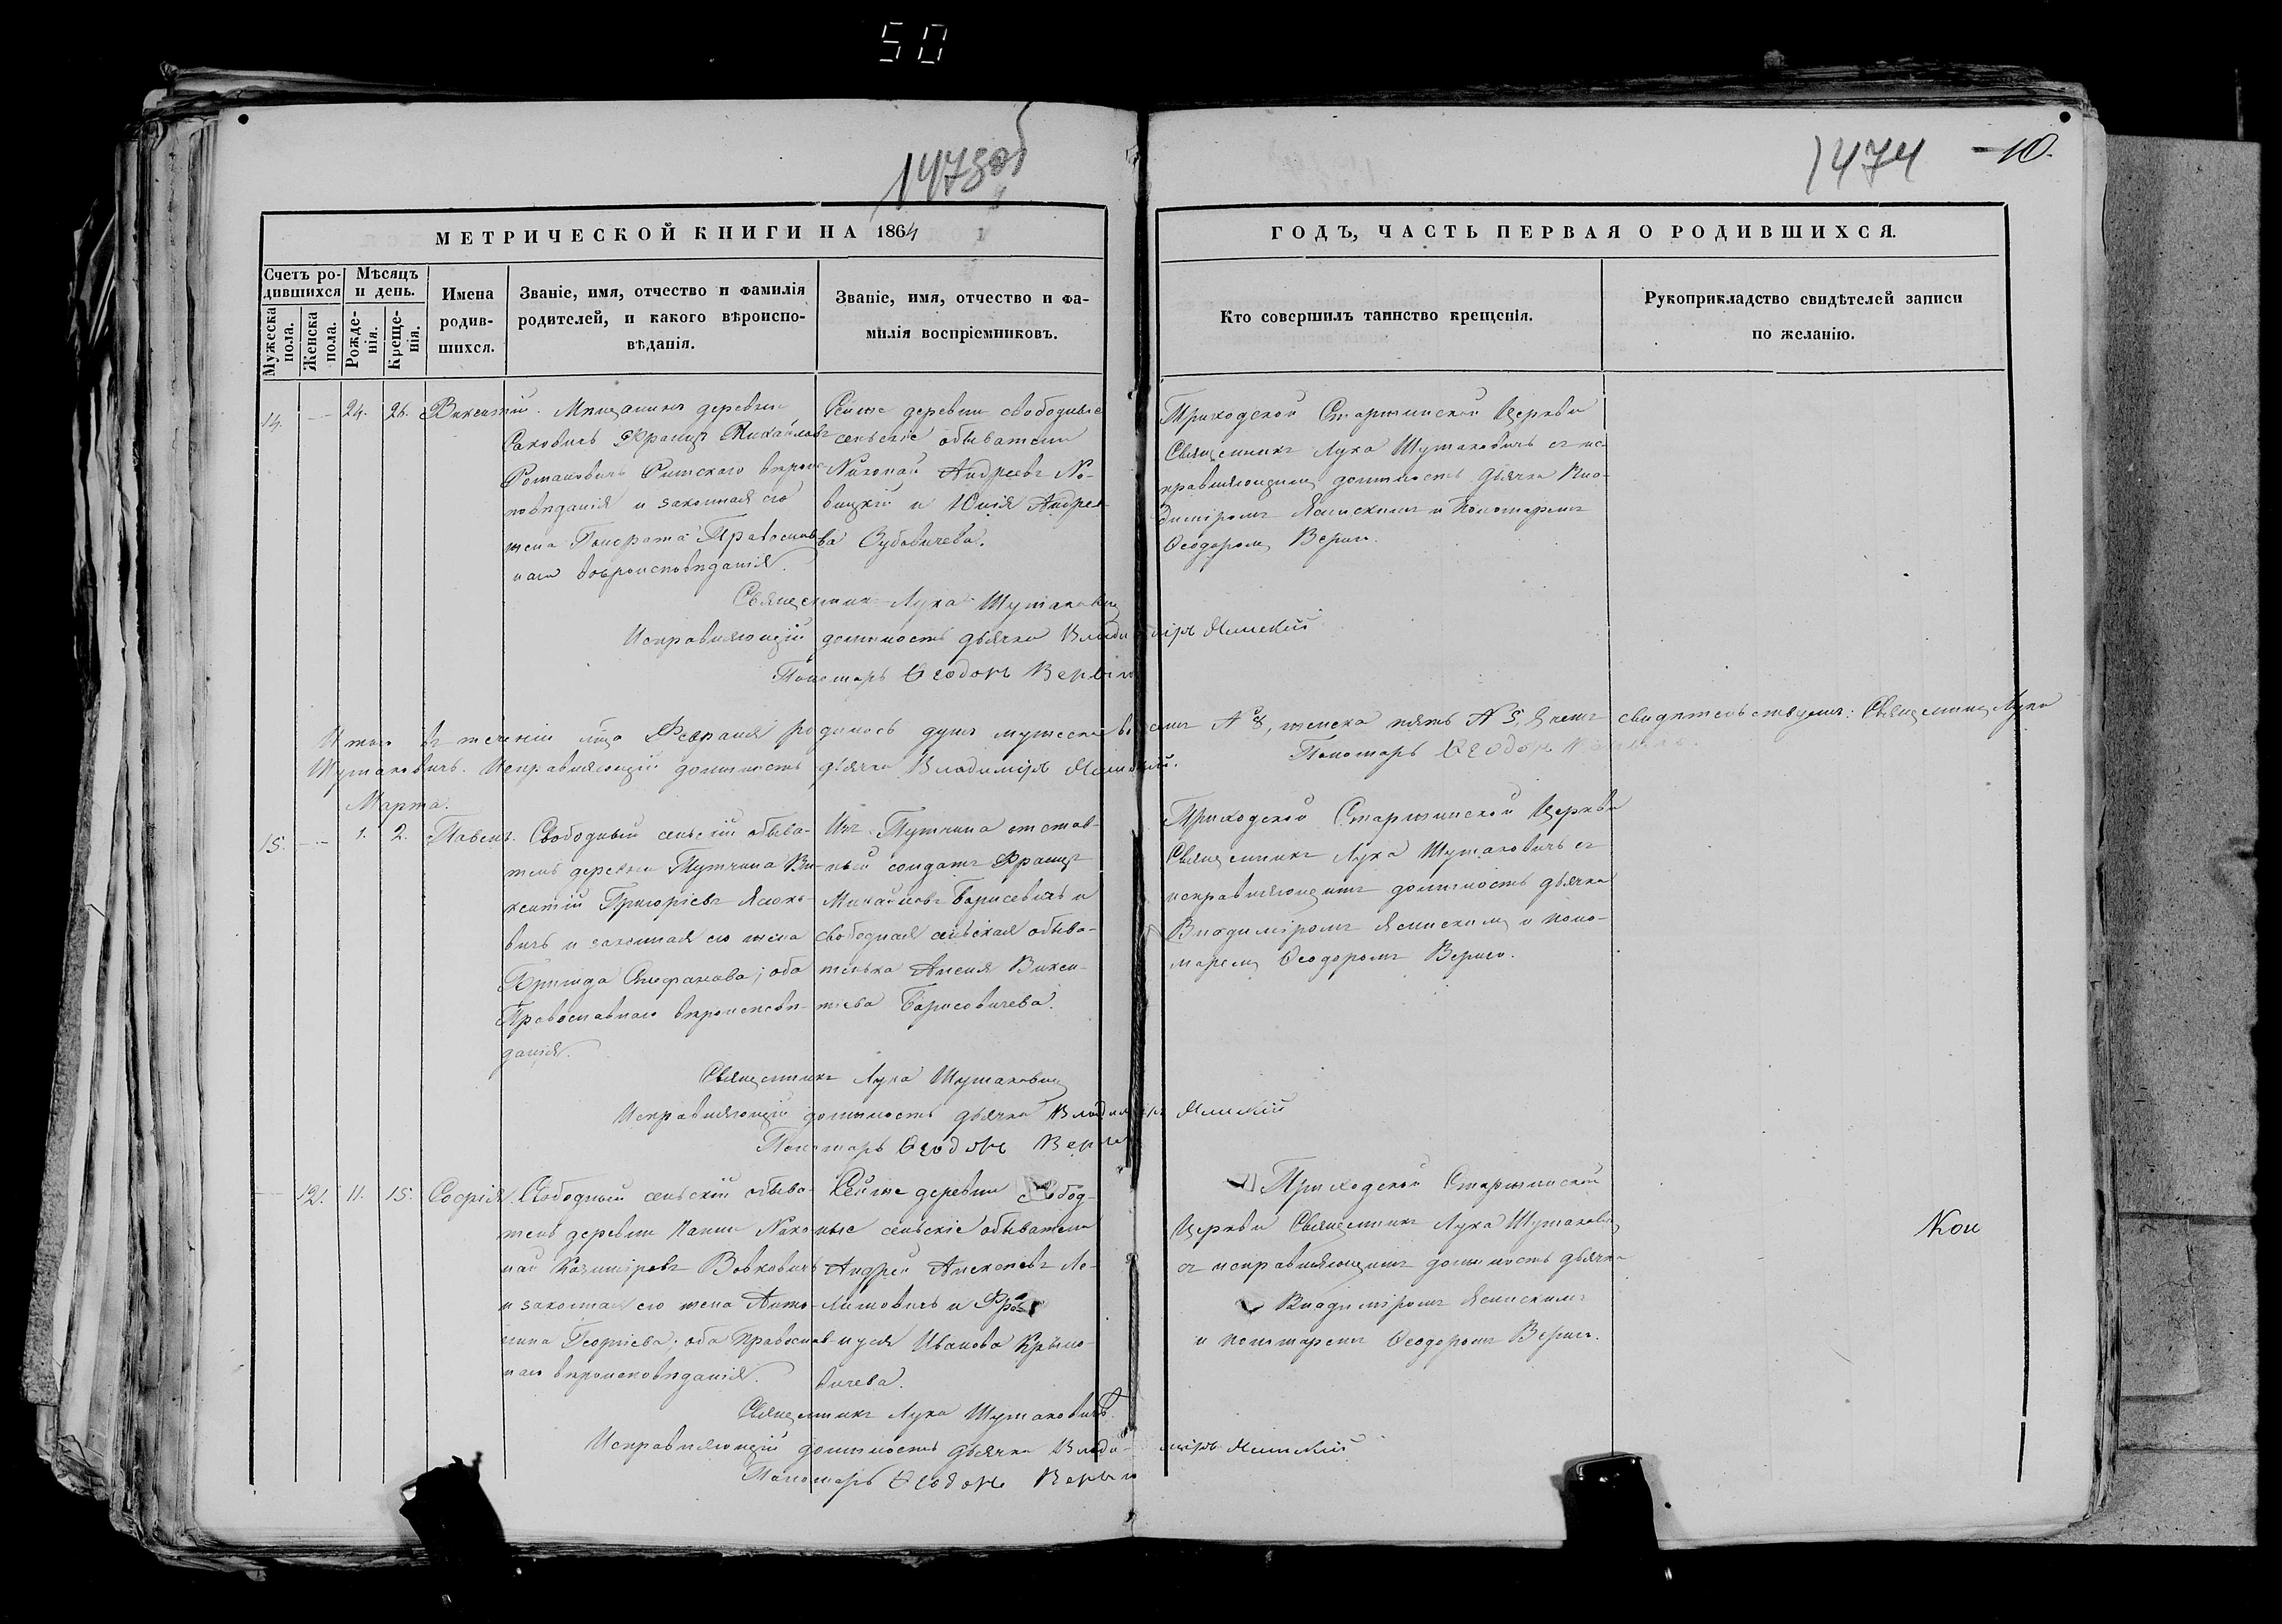 50
1473об
1474 10.
МЕТРИЧЕСКОЙ КНИГИ НА 1864
ГОДЪ, ЧАСТЬ ПЕРВАЯ О РОДИВШИХСЯ.
Счетъ ро-
дившихся
Мужеска
пола.
Женска
пола.
Мѣсяцъ
и день.
Рожде-
нія.
Креще-
нія.
Имена
родив-
шихся.
Званіе, имя, отчество и фамилія
родителей, и какого вѣроиспо-
вѣданія.
Званіе, имя, отчество и фа-
милія воспріемниковъ.
Кто совершилъ таинство крещенія.
Рукоприкладство свидѣтелей записи
по желанію.
14. 24. 26. Викентій.
Мѣщанинъ деревни
Саковичь Францъ Михайловъ
Романовичь Римскаго вѣроис
повѣданія и законная его
жена Гонората Православ
наго вѣроисповѣданія.
Сей же деревни свободные
сельскіе обыватели
Николай Андреевъ Но-
вицкій и Юлія Андрее
ва
Приходской Старжинской Церкви
Священникъ Лука Шутаковичь съ ис
правляющимъ должность дьячка Вла-
диміромъ Ялинскимъ и Пономаремъ
Ѳеодоромъ Верыго.
Священникъ Лука Шутаковичъ
Исправляющій должность дьячка Владиміръ Ялинскій
Пономарь Ѳеодоръ Верыго
Итого въ теченіи мѣца Февраля родилось душъ мужеска восемь № 8, женска пять № 5, въ чемъ свидѣтельствуемъ: Священникъ Лука
Шутаковичь. Исправляющій должность дьячка Владиміръ Ялинскій. Пономарь Ѳеодоръ Верыго.
Марта.
15. 1. 2. Павелъ.
Свободный сельскій обыва-
тель деревни Путчина Ви-
кентій Григоріевъ
вичь и законная его жена
Бригида Стефанова; оба
Православнаго вѣроисповѣ-
данія.
Изъ Путчина отстав-
ный солдатъ Францъ
Михайловъ Борисевичь и
свободная сельская обыва-
телька Викен-
тьева Борисовичева.
Приходской Старжинской Церкви
Священникъ Лука Шутаковичь съ
исправляющимъ должность дьячка
Владиміромъ Ялинскимъ и поно-
маремъ Ѳеодоромъ Верыго.
Священникъ Лука Шутаковичъ
Исправляющій должность дьячка Владиміръ Ялинскій
Пономарь Ѳеодоръ Верыго
12. 11. 15. Софія.
Свободный сельскій обыва-
тель деревни Нико
лай Казиміровъ Вовковичь
и законная его жена Анто-
нина Георгіева; оба Православ-
наго вѣроисповѣданія.
Сей же деревни свобод-
ные сельскіе обыватели
Андрей Алексѣевъ
и
Иванова
вичева.
Приходской Старжинской
Церкви Священникъ Лука Шутаковичъ
съ исправляющимъ должность дьячка
Владиміромъ Ялинскимъ
и пономаремъ Ѳеодоромъ Верыго.
Священникъ Лука Шутаковичъ.
Исправляющій должность дьячка Влади- міръ Ялинскій
Пономарь Ѳеодоръ Верыго